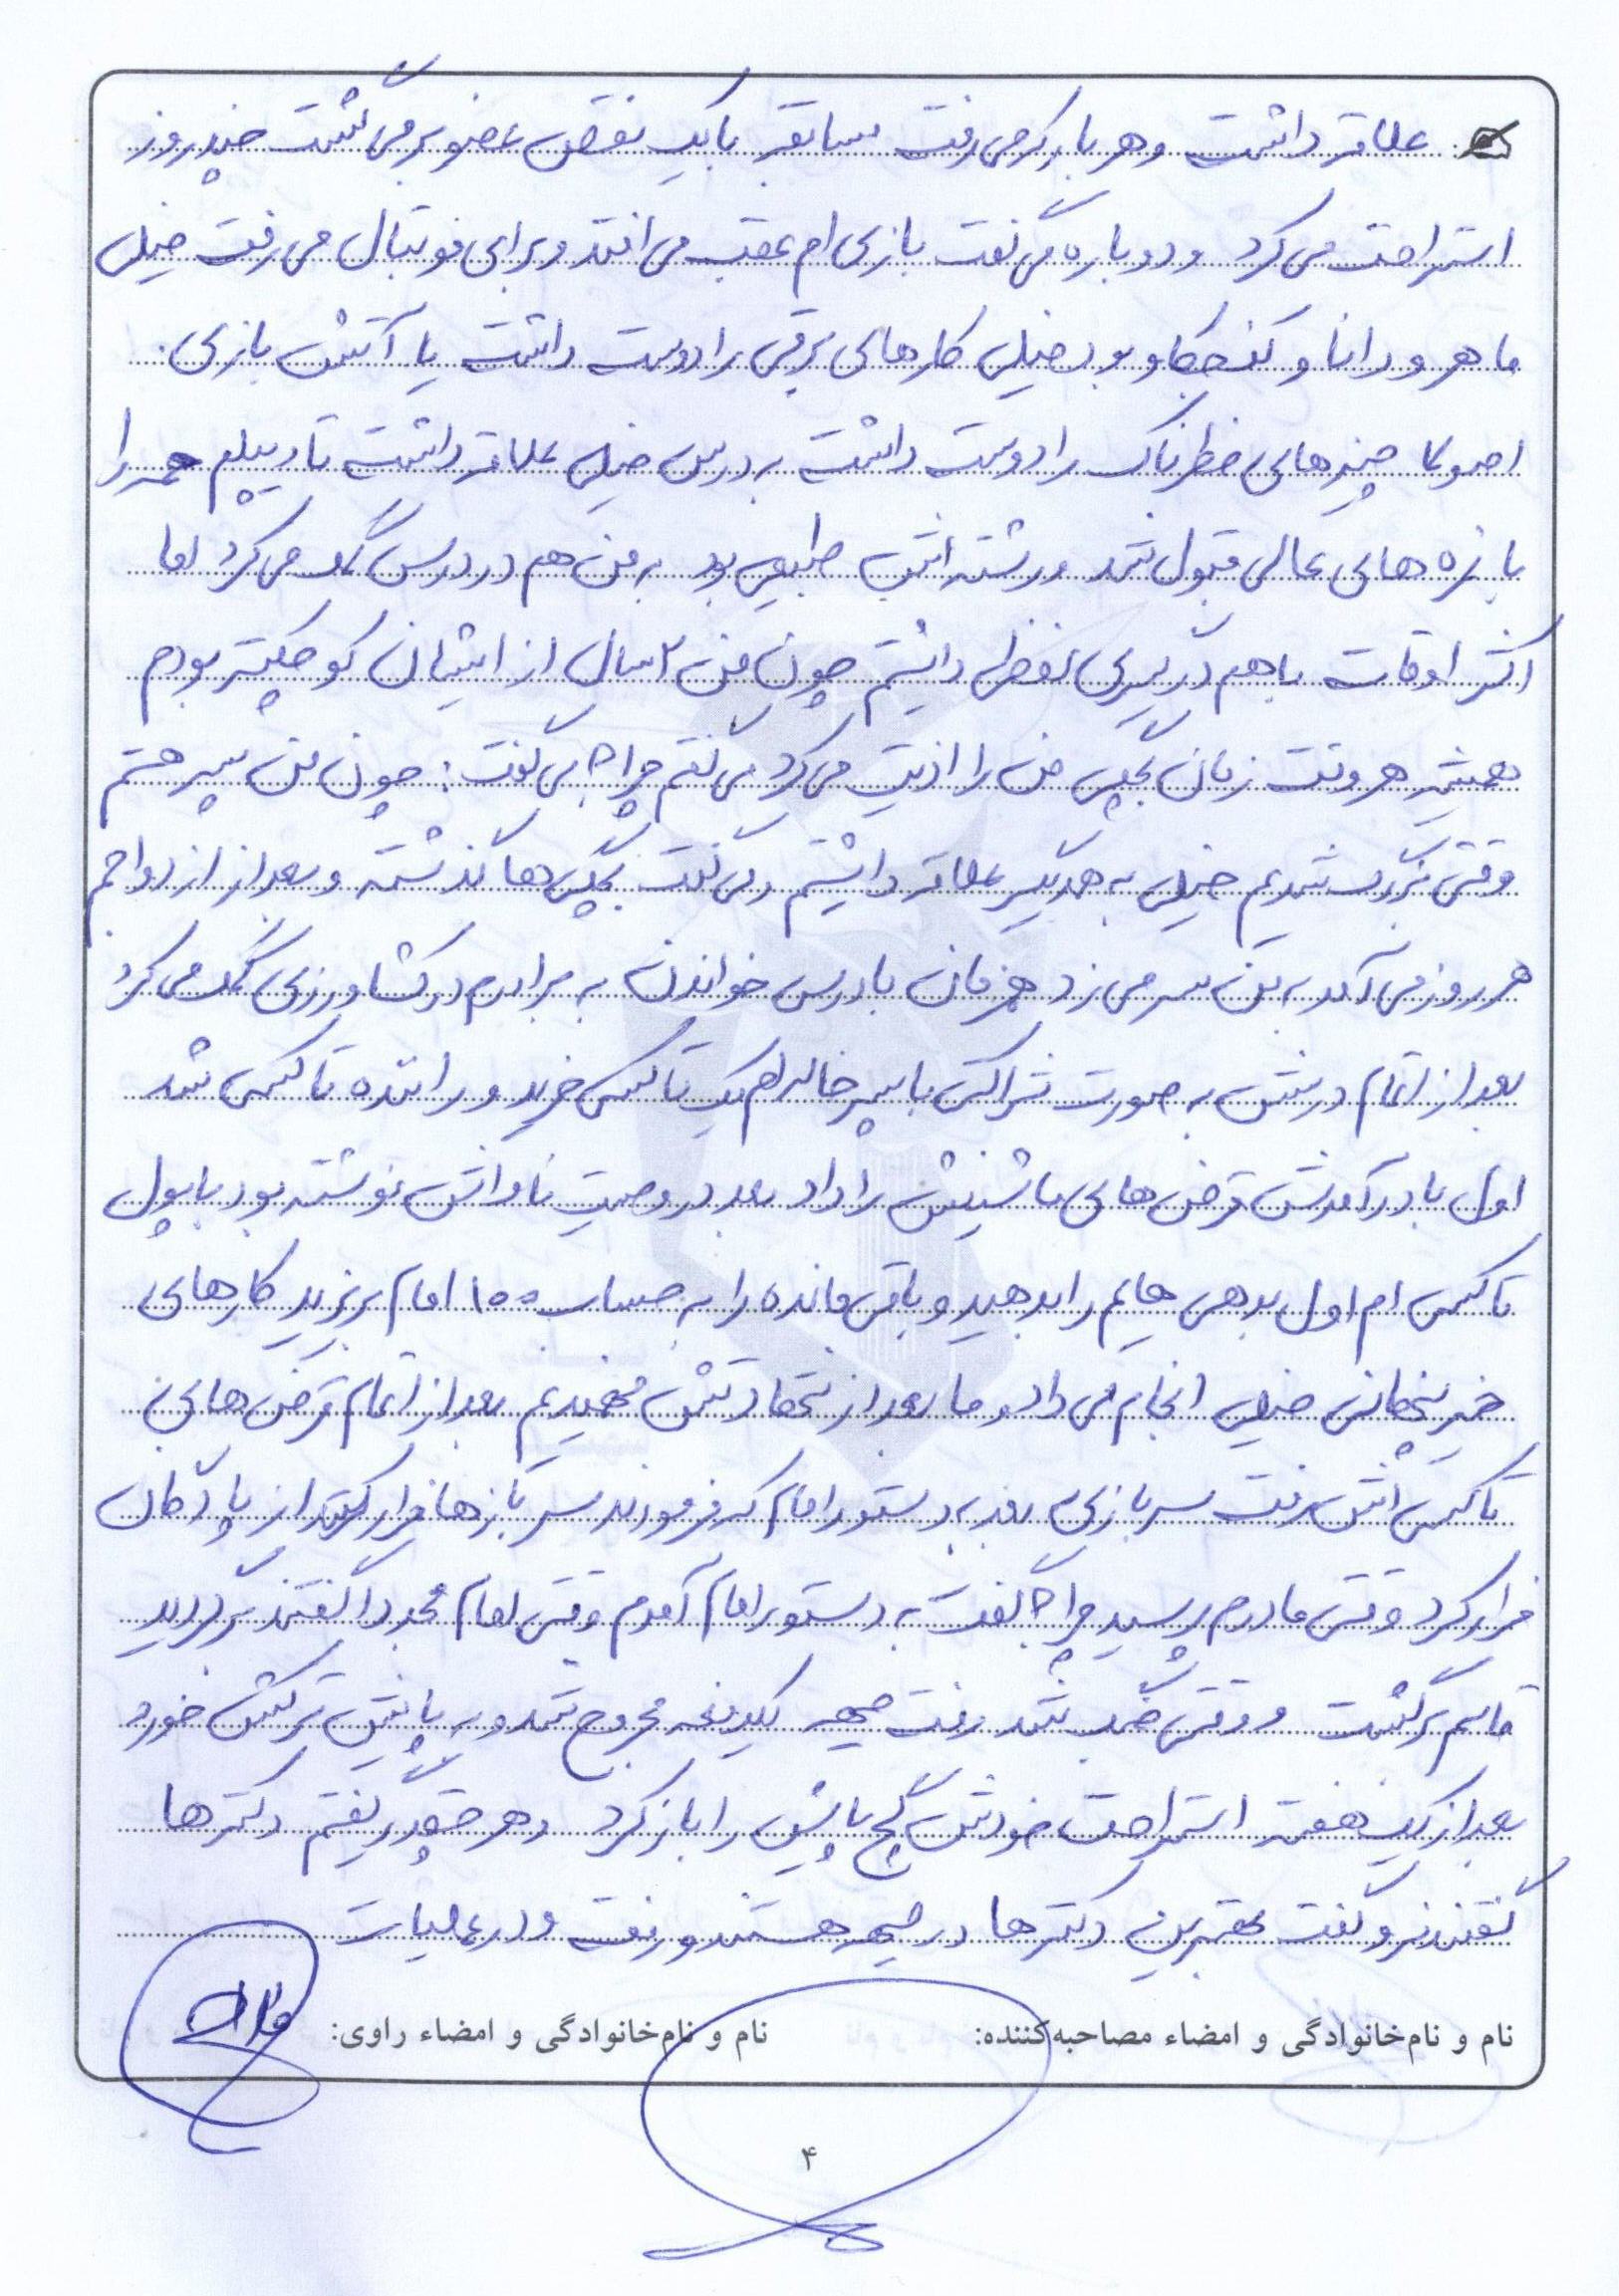 علاقه داشت و هر بار که می رفت مسابقه با یک نقص عضو برمی گشت چند روز
استراحت می کرد و دوباره می گفت بازی ام عقب می افتد و برای فوتبال می رفت خیلی
ماهر و دانا و کنجکاو بود خیلی کارهای برقی را دوست داشت یا آتش بازی.
اصولا چیزهای خطرناک را دوست داشت به درس خیلی علاقه داشت تا دیپلم همه را
با نمره های عالی قبول شد و رشته اش طبیعی بود به من هم در درس کمک می کرد اما
اکثر اوقات با هم درگیری لفظی داشتیم چون من ۲ سال از ایشان کوچکتر بودم
همیشه هر وقت زمان بچگی من را اذیت می کرد می گفتم چرا؟ می گفت: چون من پسر هستم
وقتی بزرگ شدیم خیلی به همدیگر علاقه داشتیم و می گفت بچگی ها گذشته و بعد از ازدواجم
هر روز می آمد به من سر می زد همزمان با درس خواندن به برادرم در کشاورزی کمک می کرد
بعد از اتمام درسش به صورت شراکتی با پسر خاله ام یک تاکسی خرید و راننده تاکسی شد
اول با درآمدش قرض های ماشینش را داد بعد در وصیت نامه اش نوشته بود با پول
تاکسی ام اول بدهی هایم را بدهید و باقی مانده را به حساب ۱۰۰ امام بریزید کارهای
خیر پنهانی خیلی انجام می داد و ما بعد از شهادتش فهمیدیم بعد از اتمام قرض های
تاکسی اش رفت سربازی بعد به دستور امام که فرمودند سربازها فرار کنند از پادگان
فرار کرد وقتی مادرم پرسید چرا؟ گفت به دستور امام آمدم وقتی امام مجددا گفتند برگردید
قاسم برگشت و وقتی جنگ شد رفت جبهه یکدفعه مجروح شد و به پایش ترکش خورد
بعد از یک هفته استراحت خودش گچ پایش را باز کرد و هر چقدر گفتم دکترها
گفتند نرو گفت بهترین دکترها در جبهه هستند و رفت و در عملیات
نام و نام‌خانوادگی و امضاء مصاحبه‌کننده: نام و نام‌خانوادگی و امضاء راوی:
۴